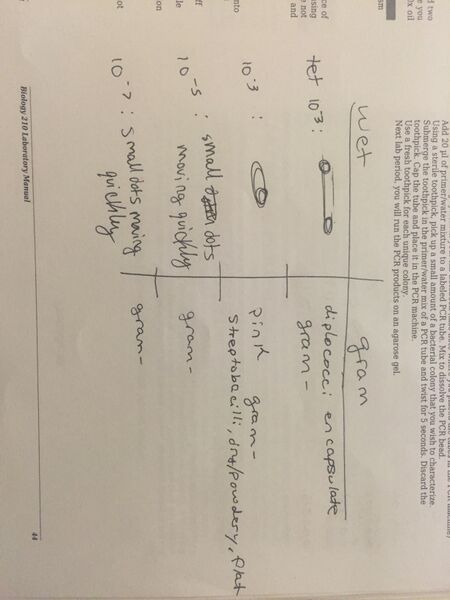 Add 20 µl of primer/water mixture to a labeled PCR tube. Mix to dissolve the PCR bead.
Using a sterile toothpick, pick up a small amount of a bacterial colony that you wish to characterize.
Submerge the toothpick in the primer/water mix of a PCR tube and twist for 5 seconds. Discard the
toothpick. Cap the tube and place it in the PCR machine.
Use a fresh toothpick for each unique colony.
Next lab period, you will run the PCR products on an agarose gel.
d two
e you
ix oil
sm
ce of
ising
o not
and
nto
ff
le
on
ot
wet gram
tet 10-3 : diplococci encapsulate
gram -
10-3 : pink gram -
streptobacilli, dry/powdery, flat
10-5 : small dots
moving quickly gram -
10-7 : small dots moving
quickly gram -
Biology 210 Laboratory Manual 44